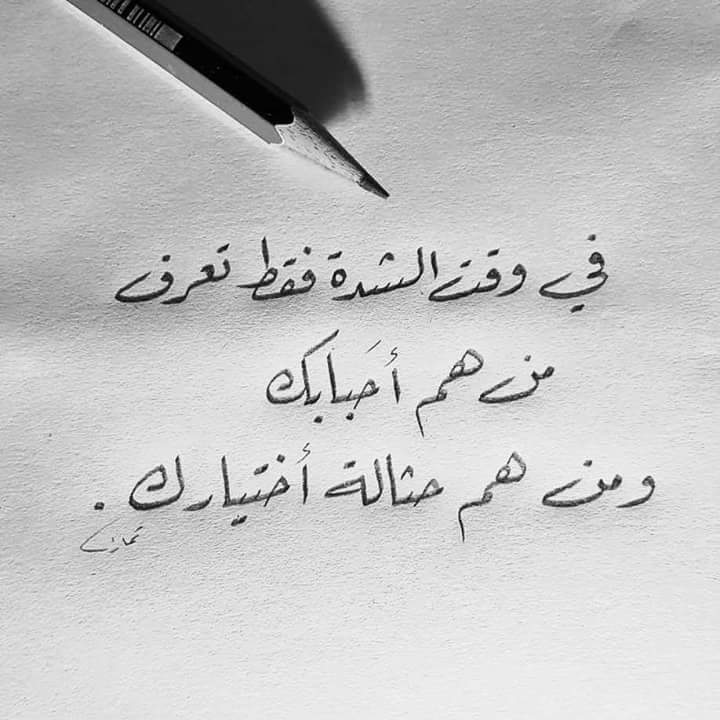 في وقت الشدة فقط تعرف
من هم أحَبابك
ومن هم حثالة أختيارك .